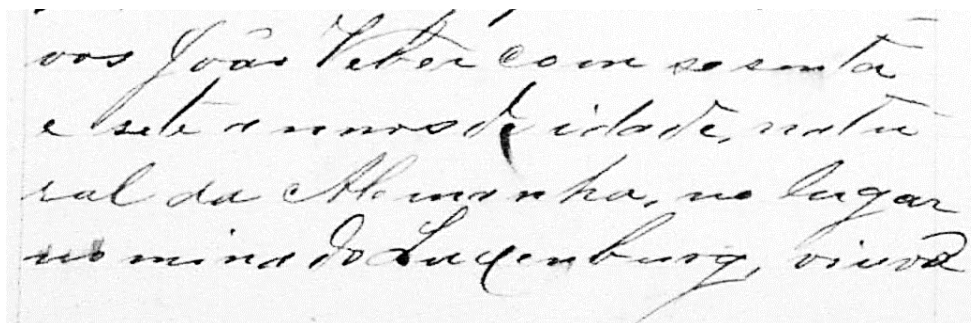 vos João Veber com sesenta
e sete annos de idade, natu
ral da Alemanha, no lugar
nomina do Luxenburg, viuvo